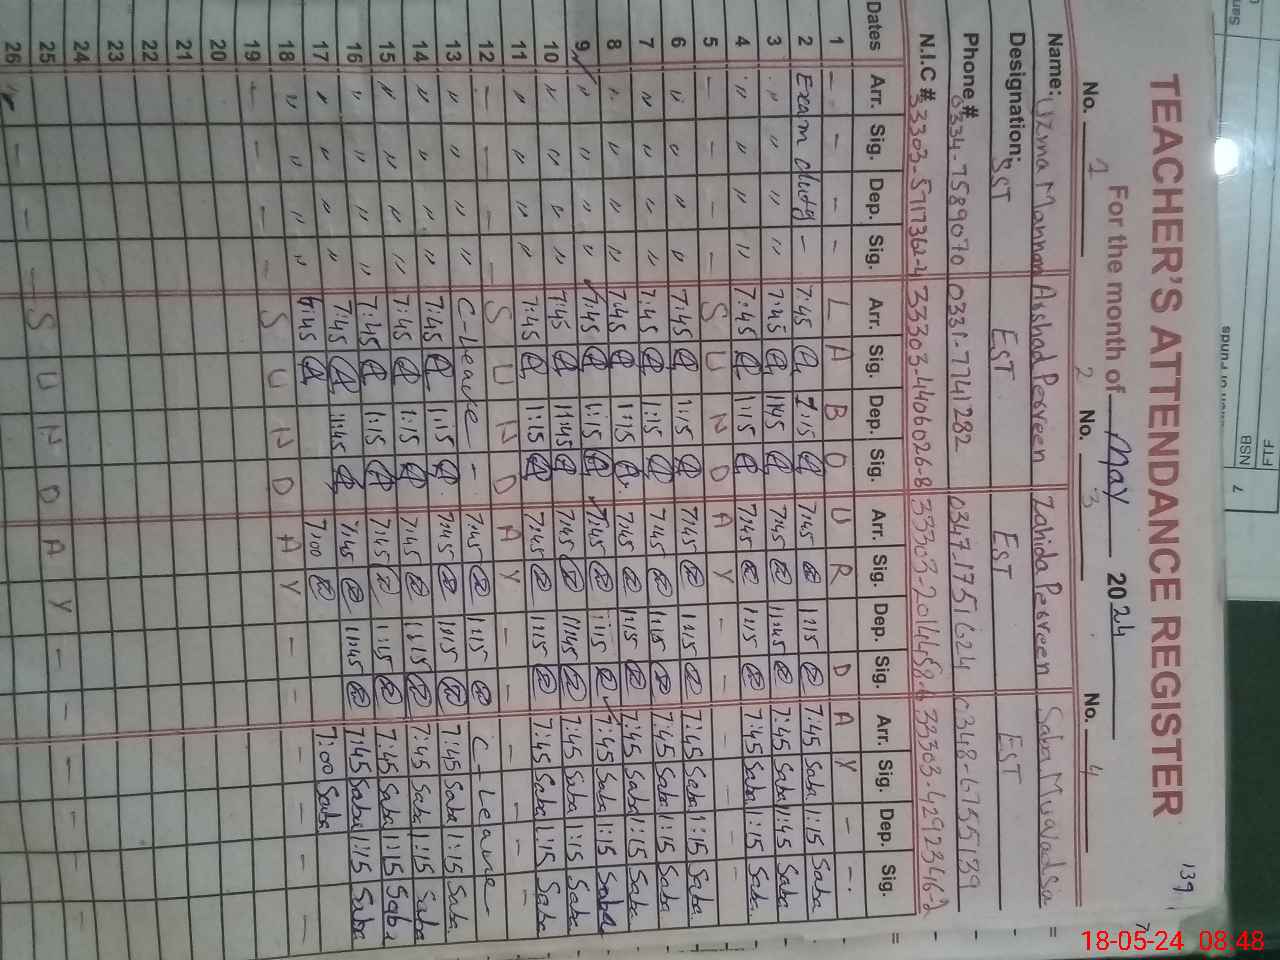 139
TEACHER'S ATTENDANCE REGISTER
For the month of May 2024
No. 1 2 No. 3 No. 4
Name: Uzma Mannan Arshad Perveen Zahida Perveen Saba
Designation: SST EST EST EST
Phone # 0334-7589070 0331-7741282 0347-1751624 0348-6755139
N.I.C # 33303-4406026-8
Dates Arr. Sig. Dep. Sig. Arr. Sig. Dep. Sig. Arr. Sig. Dep. Sig. Arr. Sig. Dep. Sig.
1 - - - - L A B O U R D A Y - -
2 Exam duty - 7:45 1:15 7:45 1:15 7:45 Saba 1:15 Saba
3 " " " " 7:45 11:45 7:45 11:45 7:45 Saba 1:45 Saba
4 " " " " 7:45 1:15 7:45 1:15 7:45 Saba 1:15 Saba
5 - - - - S U N D A Y - - - - -
6 " " " " 7:45 1:15 7:45 1:15 7:45 Saba 1:15 Saba
7 " " " " 7:45 1:15 7:45 1:15 7:45 Saba 1:15 Saba
8 " " " " 7:45 1:15 7:45 1:15 7:45 Saba 1:15 Saba
9 " " " " 7:45 1:15 7:45 1:15 7:45 Saba 1:15 Saba
10 " " " " 7:45 11:45 7:45 11:45 7:45 Saba 1:15 Saba
11 " " " " 7:45 1:15 7:45 1:15 7:45 Saba 1:15 Saba
12 - - - - S U N D A Y - - - - -
13 " " " " C-Leave - 7:45 1:15 C-Leave
14 " " " " 7:45 1:15 7:45 1:15 7:45 Saba 1:15 Saba
15 " " " " 7:45 1:15 7:45 1:15 7:45 Saba 1:15 Saba
16 " " " " 7:45 1:15 7:45 1:15 7:45 Saba 1:15 Saba
17 " " " " 7:45 11:45 7:45 11:45 7:45 Saba 1:15 Saba
18 " " " " 7:45 7:00 7:00 Saba
19 - - - - S U N D A Y - - - - -
20
21
22
23
24
25
26 - - - S U N D A Y - - - -
FTF
NSB
18-05-24 08:48